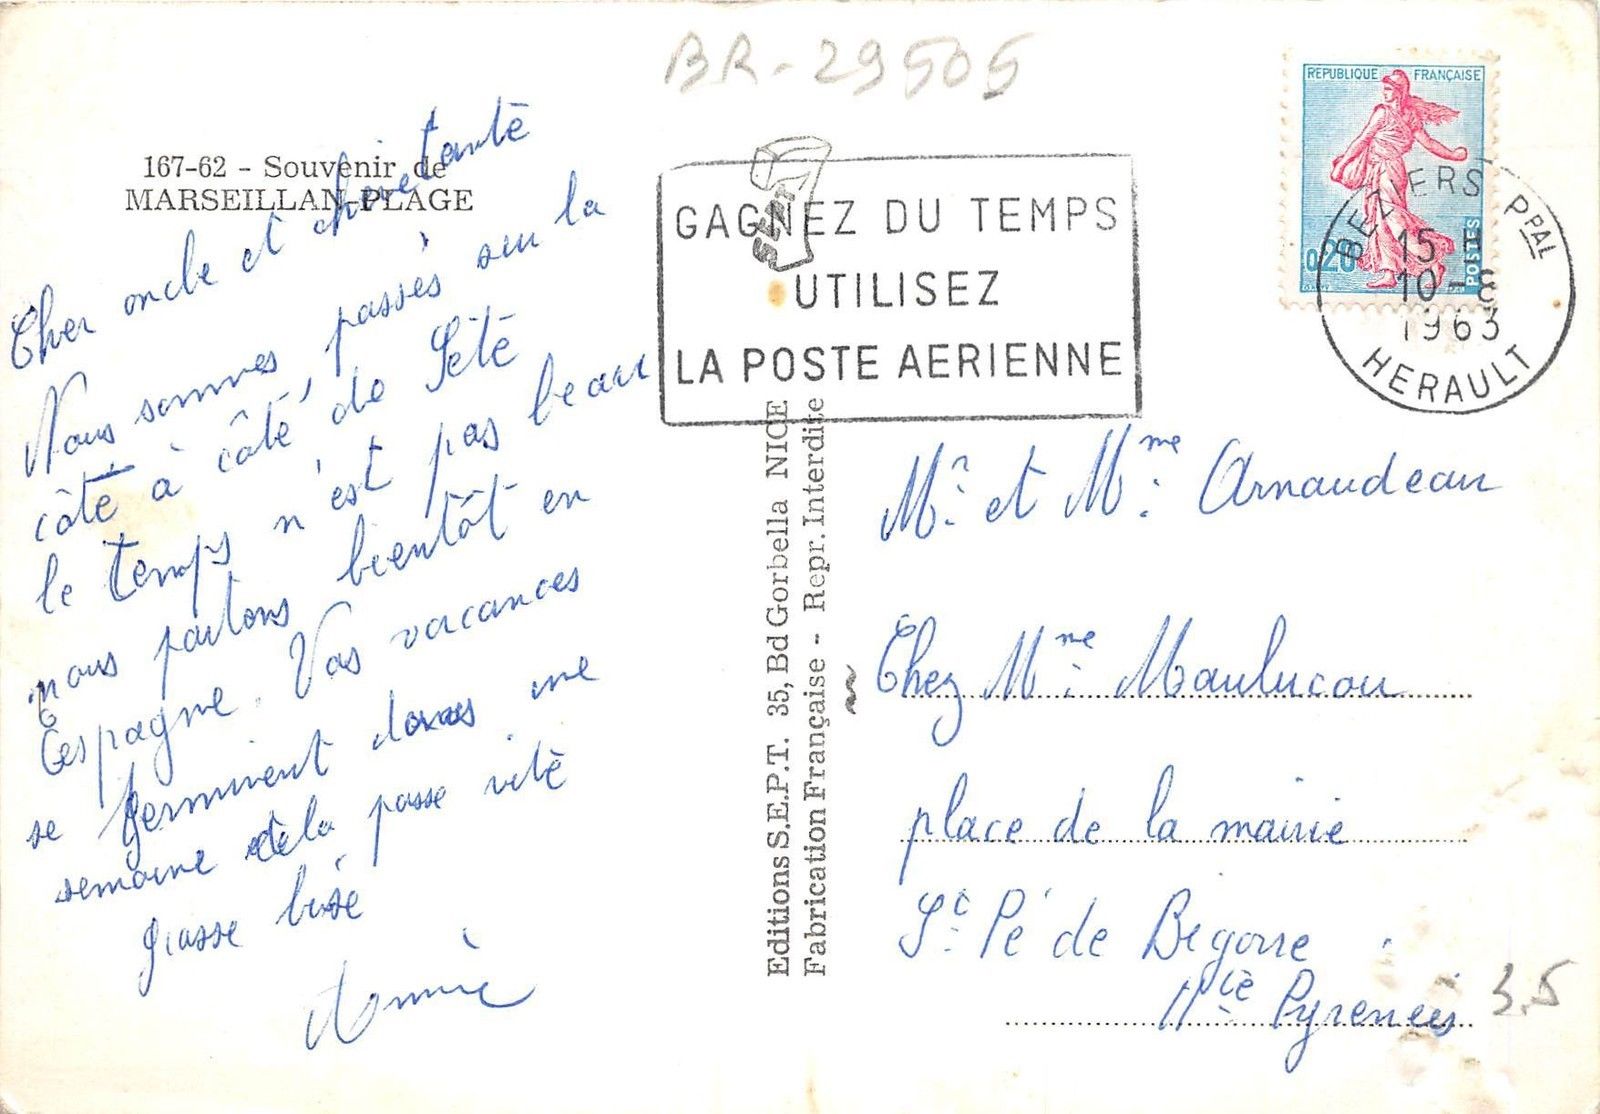 BR-29505
167-62 - Souvenir de
MARSEILLAN-PLAGE
Cher oncle et chère tante
Nous sommes passés sur la
côte à côté, de Sète
le temps n'est pas beau
nous partons bientôt en
Espagne. Vos vacances
se terminent dans une
semaine cela passe vite
grosse bise
Annie
Editions S.E.P.T. 35, Bd Gorbella NICE
Fabrication Française - Repr. Interdite
GAGNEZ DU TEMPS
UTILISEZ
LA POSTE AERIENNE
REPUBLIQUE FRANÇAISE
0,20
POSTES
BEZIERS PPAL
15 H
10-8
1963
HERAULT
Mr. et Mme. Arnaudeau
Chez Mme. Maulucou
place de la mairie
St. Pé de Bigorre
Htes Pyrenées
3,5